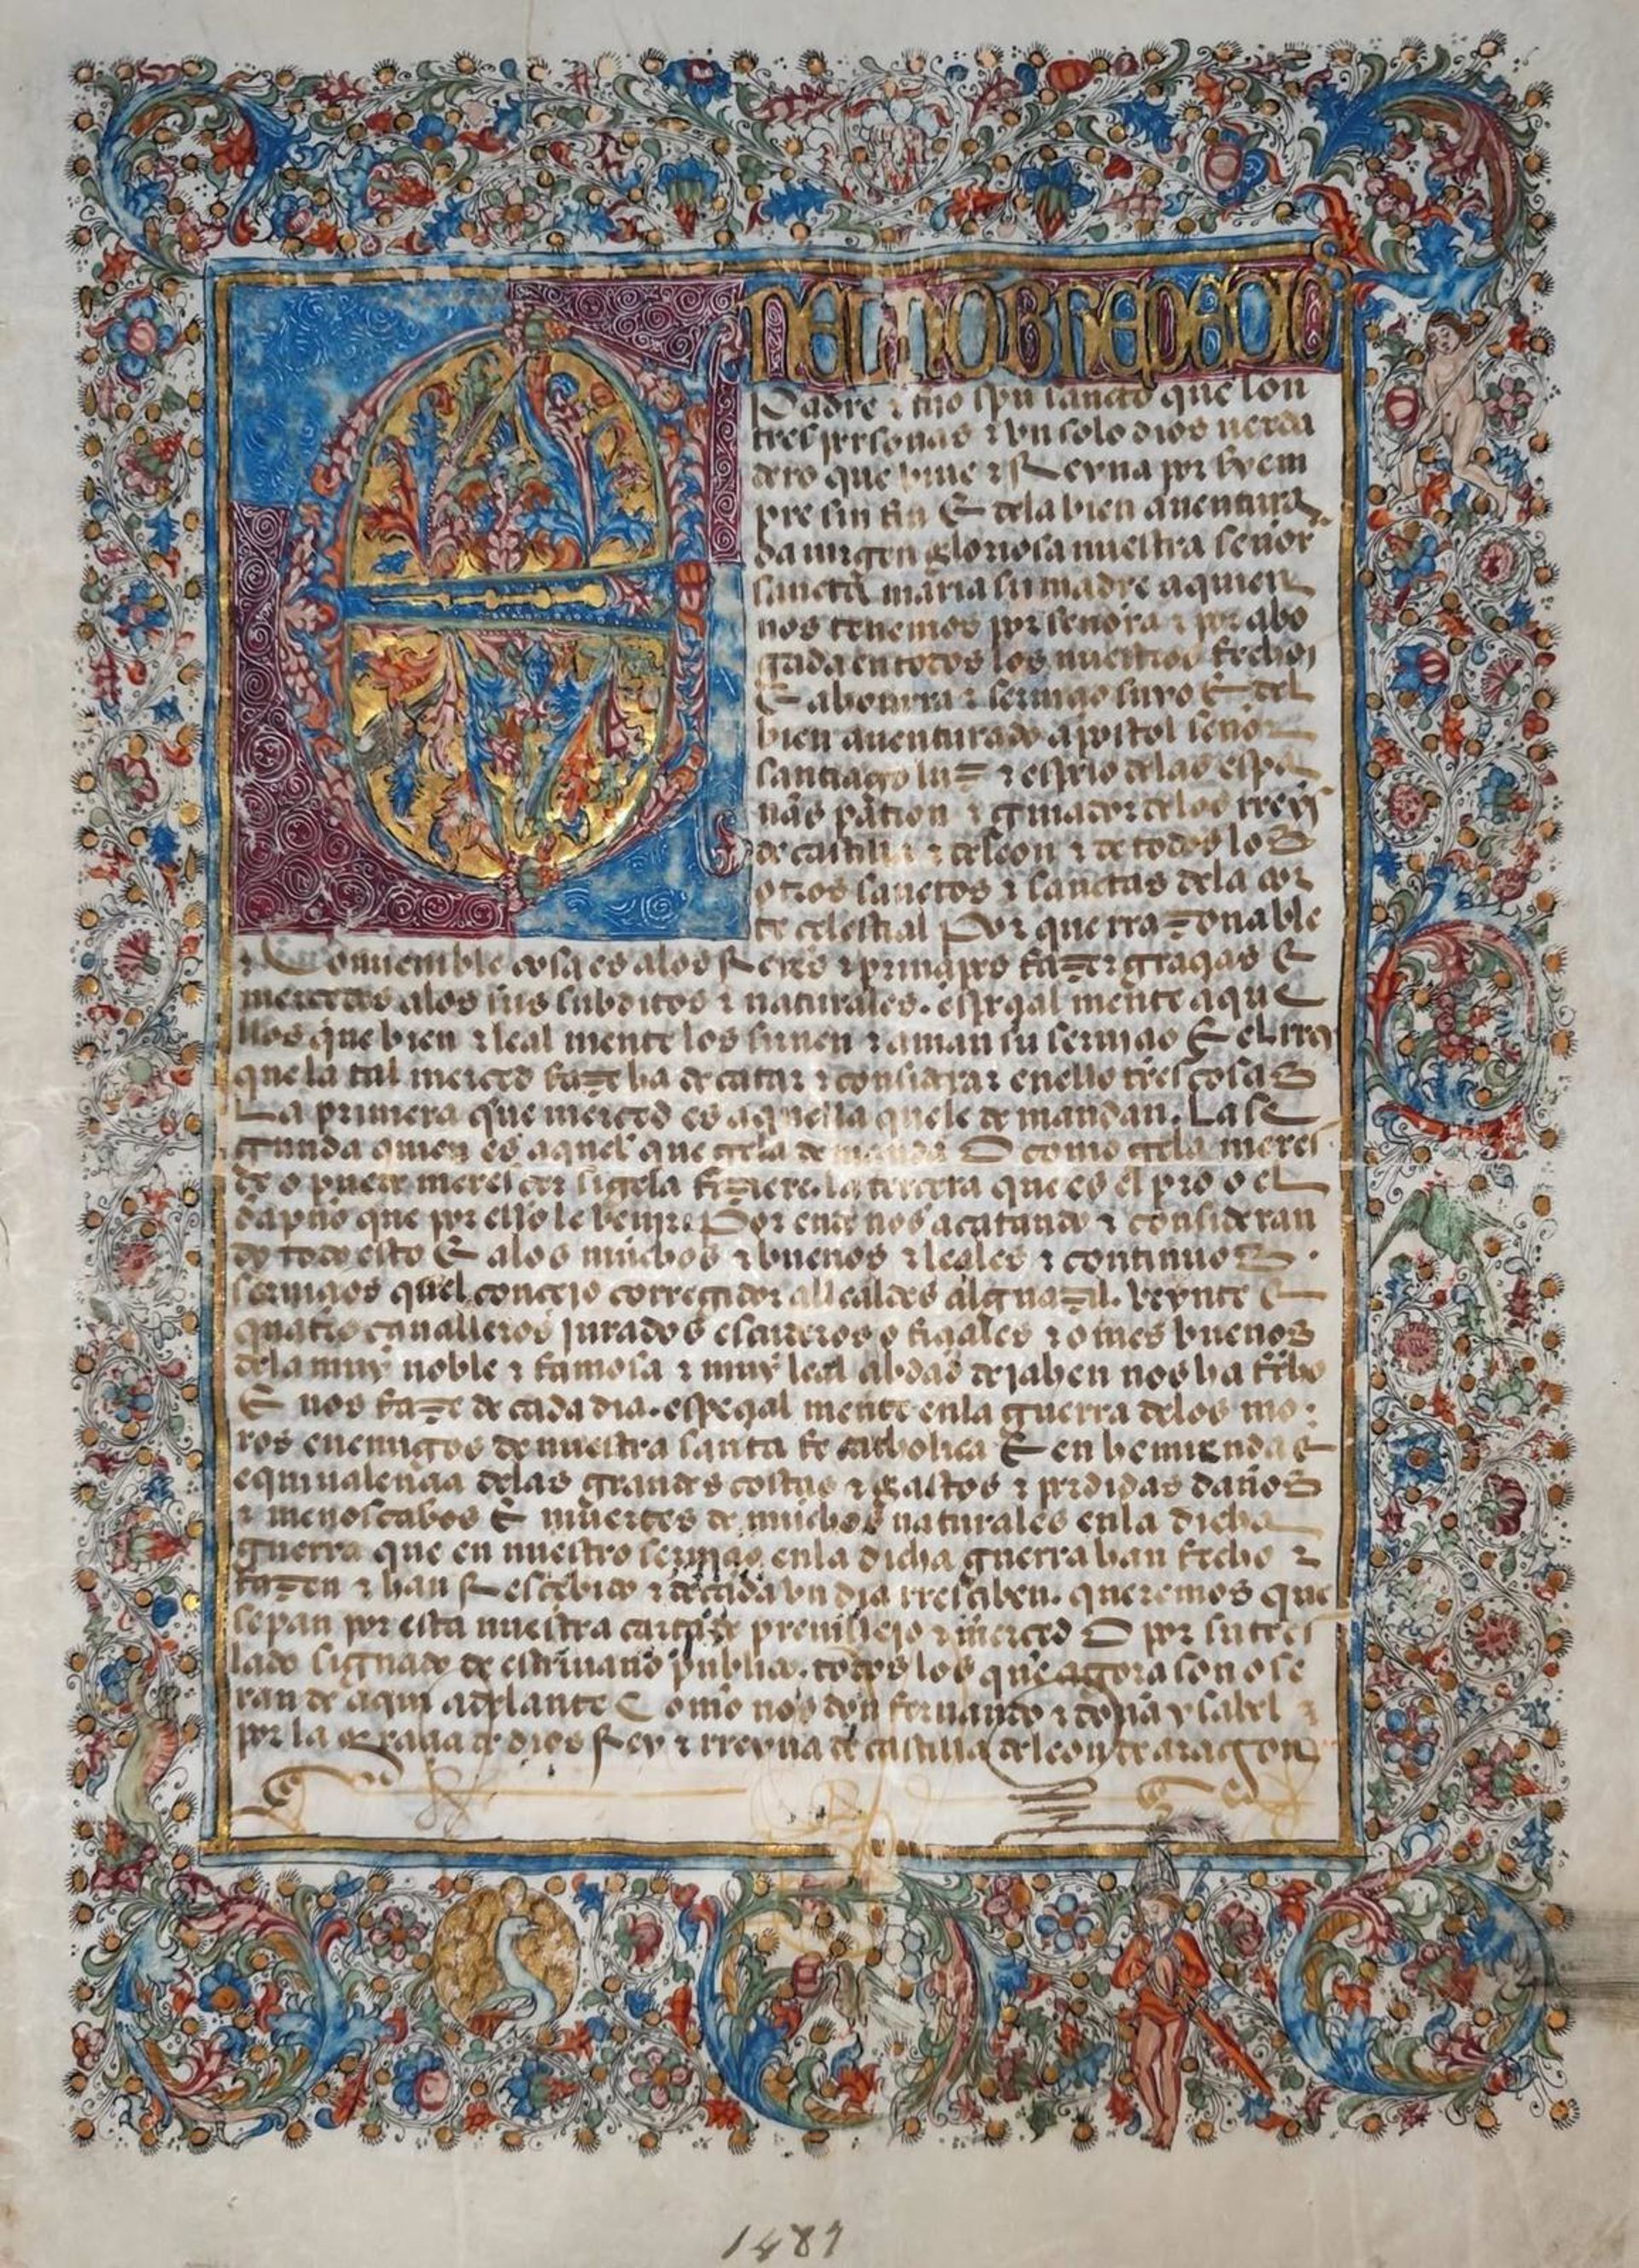 EN EL NOBRE DE DIO
Padre ⁊ fijo spũ sancto que son
tres personas ⁊ vn solo dios uerda
dero que biue ⁊ Reyna por siem
pre sin fin E dela bien auentura
da uirgen gloriosa nuestra señor
sancta maria su madre a quien
nos tenemos por señora ⁊ por abo
gada en todos los nuestros fechos
E a honrra ⁊ seruiçio suyo E del
bien auenturado apostol señor
santiago luz ⁊ espeio delas espa
ñas patron ⁊ guiador delos rreys
de castilla ⁊ de leon ⁊ de todos los
otros sanctos ⁊ sanctas dela cor
te celestial Por que rrazonable
⁊ Conuenible cosa es alos Reyes ⁊ prinçipes fazer graçias E
merçedes alos sus subditos ⁊ naturales. espeçial mente a que
llos que bien ⁊ leal mente los siruen ⁊ aman su seruiçio E el rrey
que la tal merced faze ha de catar ⁊ considerar enello tres cosas
La primera que merced es aquella que le demandan. La se
gunda quien es aquel que gela demanda O como gela meres
çe o puede meresçer si gela fiziere. la tercera que es el pro o el
dapño que por ello le benir. Por ende nos acatando ⁊ consideran
do todo esto E alos muchos ⁊ buenos ⁊ leales ⁊ continuos
seruiçios quel conçejo corregidor allcaldes alguazil. veynte E
quatro caualleros jurados escuderos ofiçiales ⁊ omes buenos
dela muy noble ⁊ famosa ⁊ muy leal çibdad de jahen nos ha fecho
E nos faze de cada dia. espeçial mente enla guerra delos mo
ros enemigos de nuestra santa fe catholica E en hemienda E
equiualençia delas grandes costas ⁊ gastos ⁊ perdidas daños
⁊ menoscabos E muertes de muchos naturales enla dicha
guerra que en nuestro seruiçio enla dicha guerra han fecho ⁊
fazen ⁊ han Resçebido ⁊ de cada vn dia rresciben. queremos que
sepan por esta nuestra carta de preuillejo ⁊ merced O por su tres
lado signado de escriuano publico. todos los que agora son o se
ran de aqui adelante Como nos don fernando ⁊ doña ysabel
por la graçia de dios Rey ⁊ rreyna de castilla de leon de aragon
1487